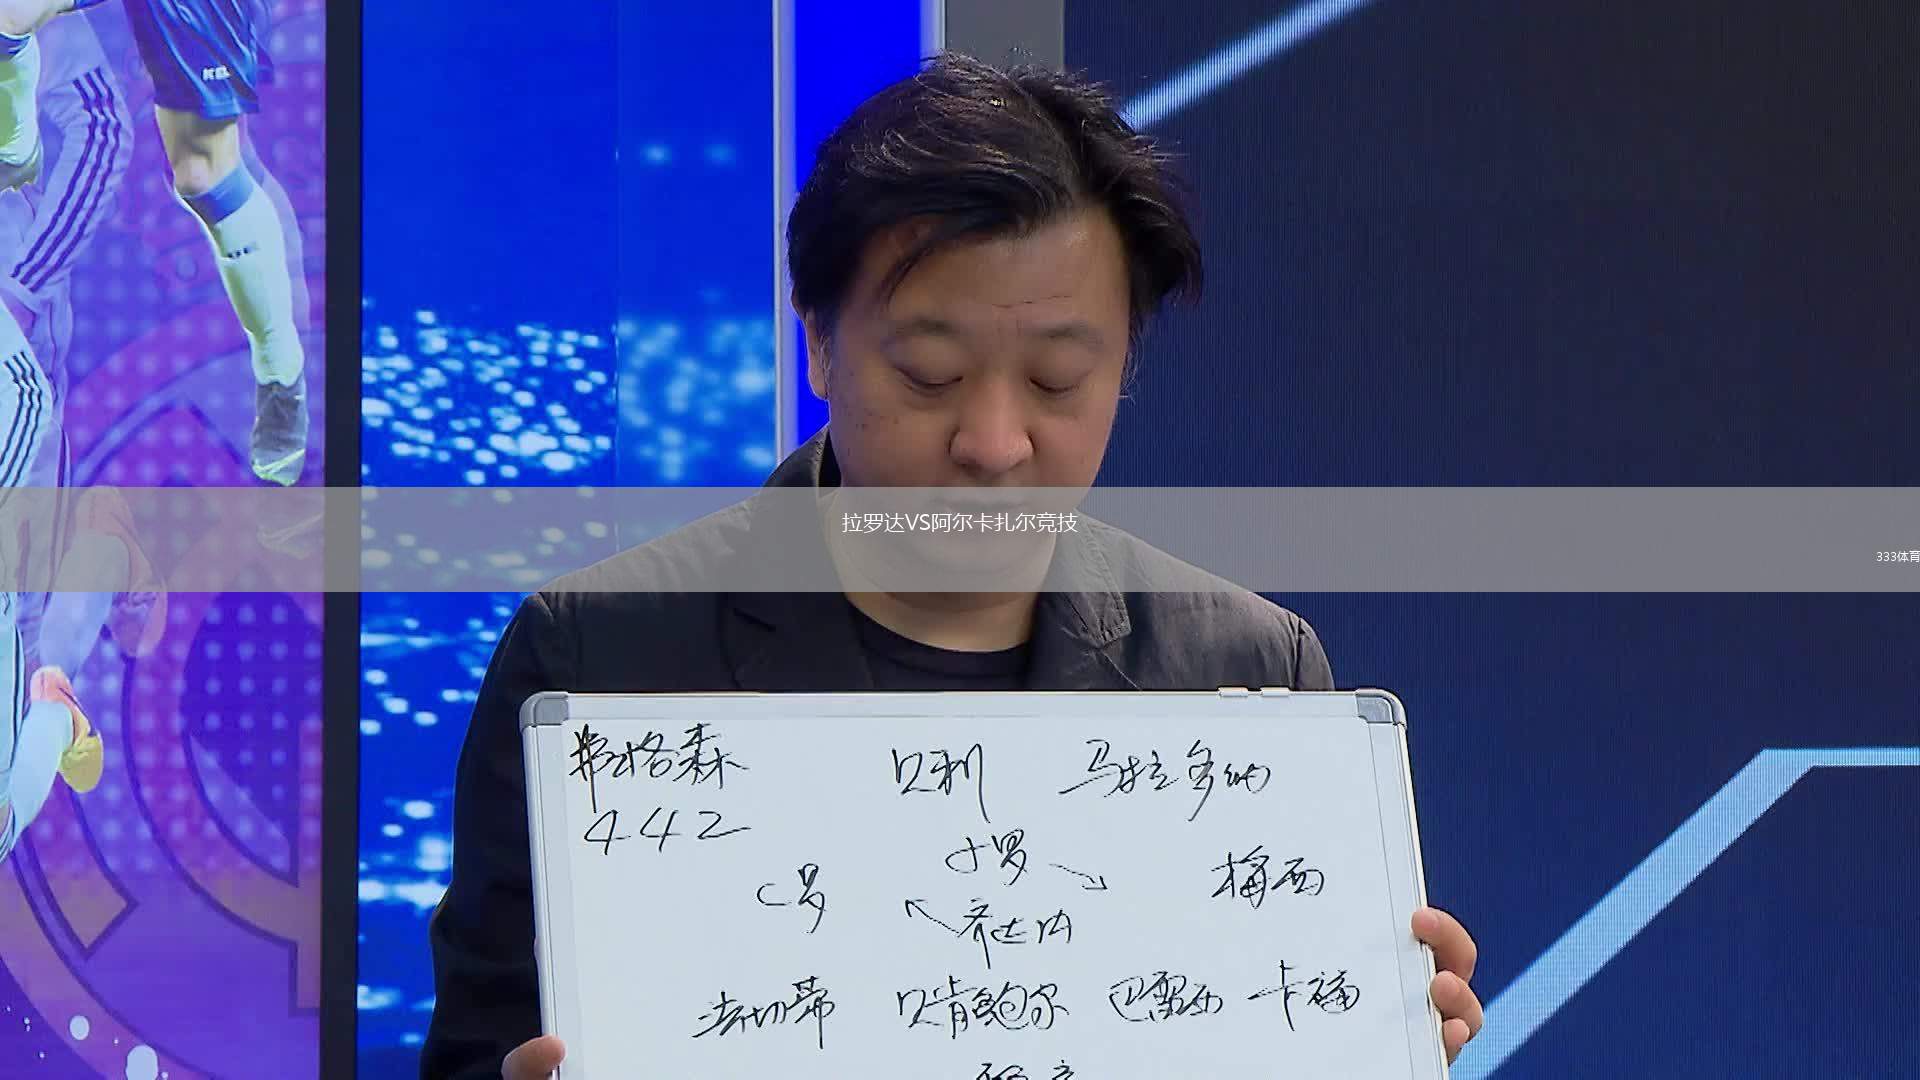 拉罗达VS阿尔卡扎尔竞技
333体育
弗格森
442
贝利 马拉多纳
小罗
C罗 梅西
齐达内
法切蒂 贝肯鲍尔 巴雷西 卡福